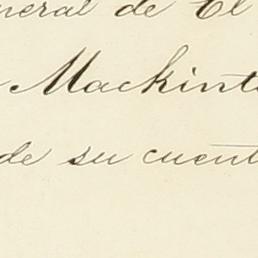 neral de El
Mackint
de su cuent